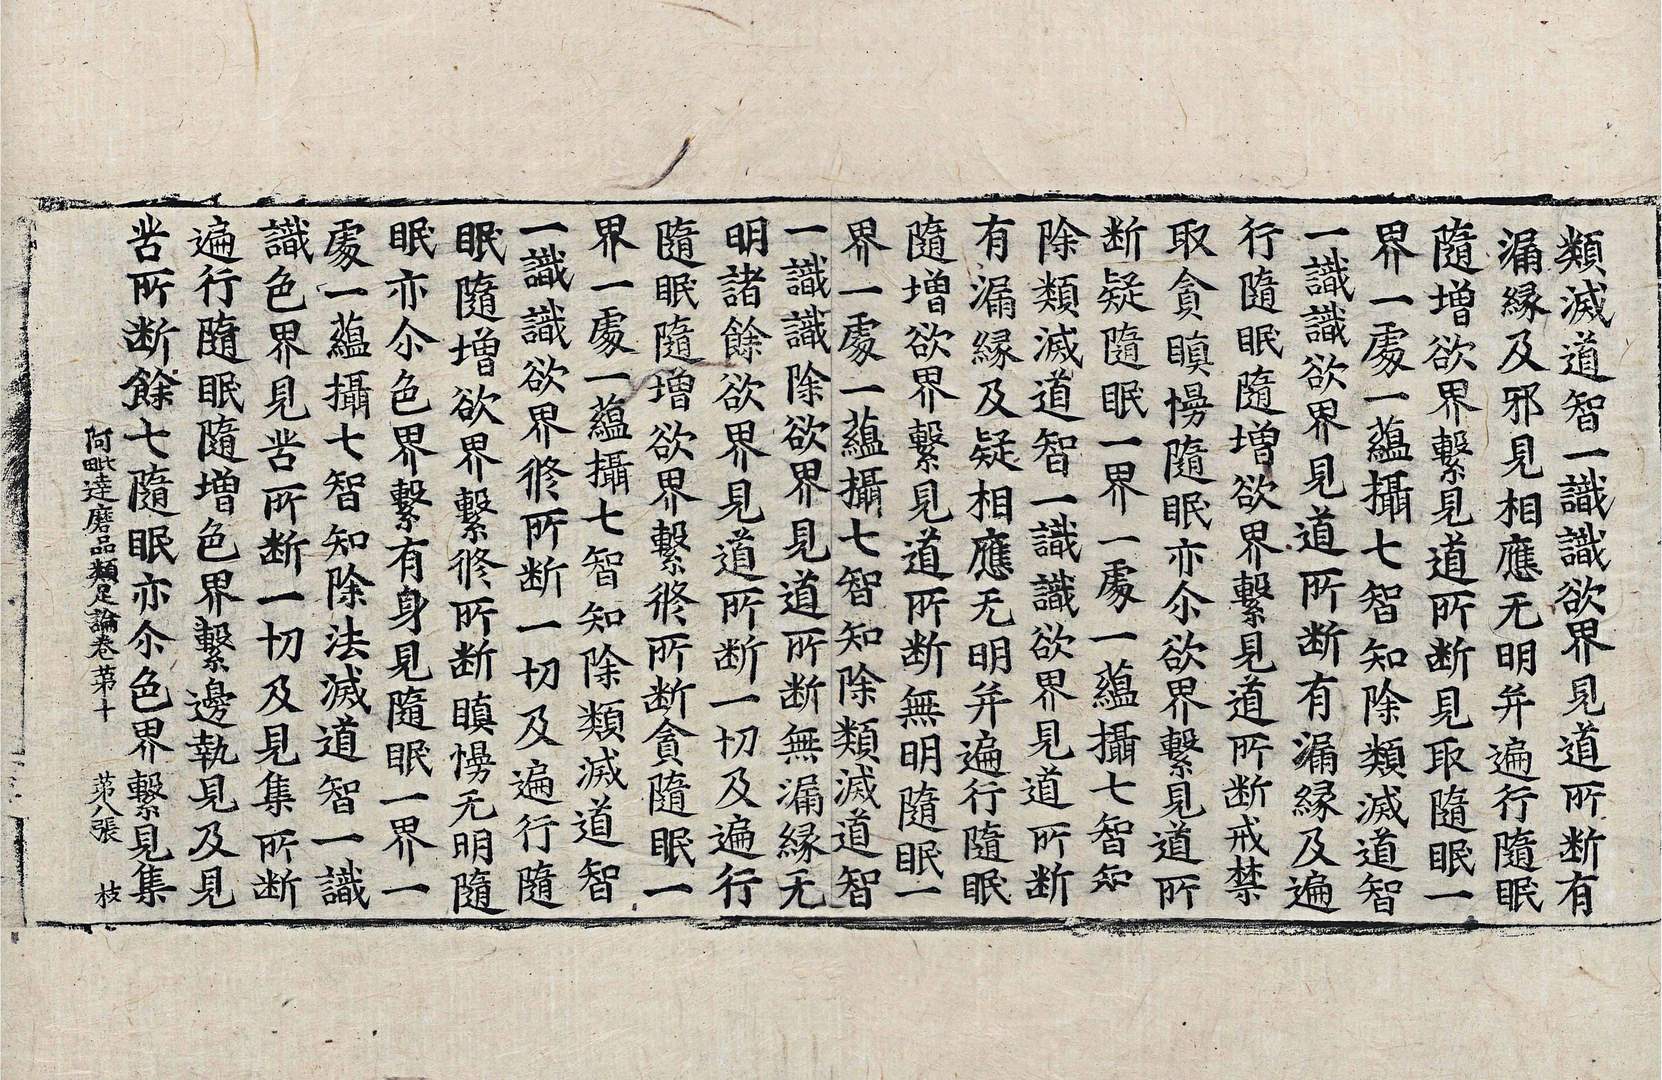 類滅道智一識識欲界見道所断有
漏縁及邪見相應无明并遍行隨眠
隨增欲界繫見道所断見取隨眠一
界一處一蘊攝七智知除類滅道智
一識識欲界見道所断有漏縁及遍
行隨眠隨增欲界繫見道所断戒禁
取貪瞋慢隨眠亦尒欲界繫見道所
断疑隨眠一界一處一蘊攝七智知
除類滅道智一識識欲界見道所断
有漏縁及疑相應无明并遍行隨眠
隨增欲界繫見道所断無明隨眠一
界一處一蘊攝七智知除類滅道智
一識識除欲界見道所断無漏縁无
明諸餘欲界見道所断一切及遍行
隨眠隨增欲界繫修所断貪隨眠一
界一處一蘊攝七智知除類滅道智
一識識欲界修所断一切及遍行隨
眠隨增欲界繫修所断瞋慢无明隨
眠亦尒色界繫有身見隨眠一界一
處一蘊攝七智知除法滅道智一識
識色界見苦所断一切及見集所断
遍行隨眠隨增色界繫邊執見及見
苦所断餘七隨眠亦尒色界繫見集
阿毗達磨品類足論卷第十 第八張 枝